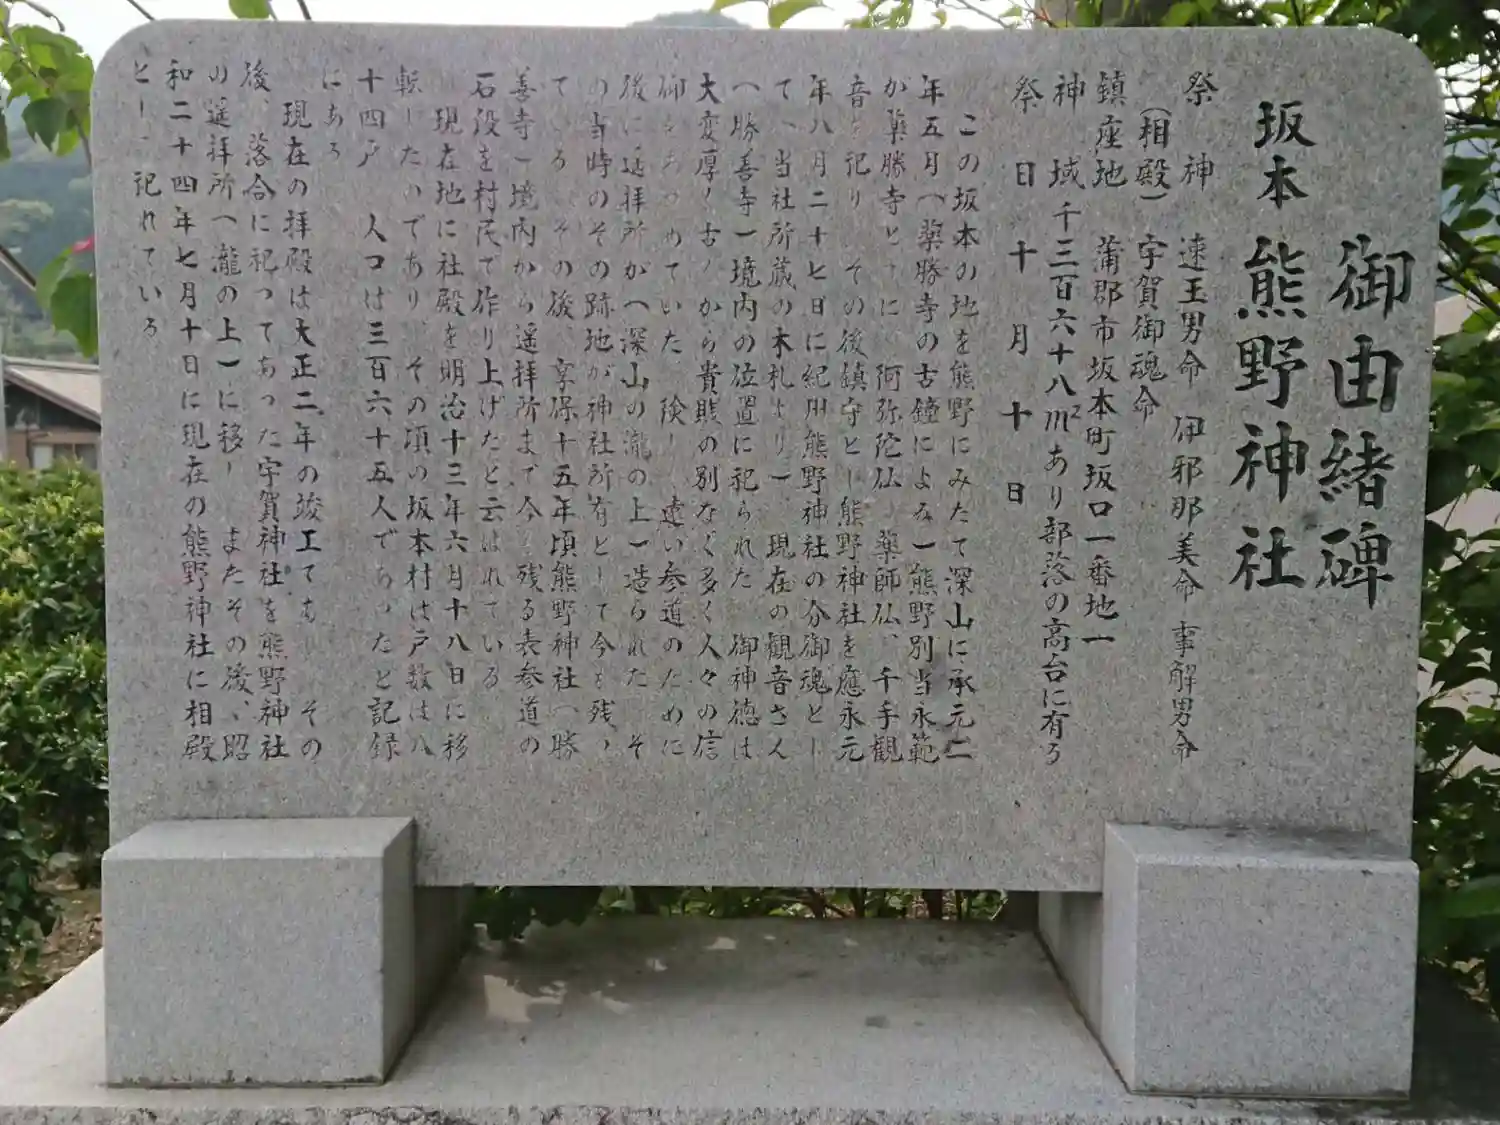 御由緒碑
坂本 熊野神社
祭神 速玉男命 伊邪那美命 事解男命
(相殿) 宇賀御魂命
鎮座地 蒲郡市坂本町坂口一番地一
神域 千三百六十八m²あり部落の高台に有る
祭日 十月十日
この坂本の地を熊野にみたて深山に承元二
年五月(薬勝寺の古鐘によみ一熊野別当永範
が薬勝寺とに 阿弥陀仏 薬師仏、千手観
音を祀り その後鎮守とし熊野神社を應永元
年八月二十七日に紀州熊野神社の分御魂とし
て、当社所蔵の木札より一、現在の観音さん
(勝善寺一境内の位置に祀られた 御神徳は
大変厚く古くから貴賎の別なく多く人々の信
仰をあつめていた 険し 遠い参道のために
後に遥拝所が(深山の瀧の上一造られた そ
の当時のその跡地が神社所有として今も残っ
ている その後、享保十五年頃熊野神社(勝
善寺一境内から遥拝所まで今も残る表参道の
石段を村民で作り上げたと云はれている
現在地に社殿を明治十三年六月十八日に移
転したのであり、その頃の坂本村は戸数は八
十四戸 人口は三百六十五人であったと記録
にある
現在の拝殿は大正二年の竣工であり その
後、落合に祀ってあった宇賀神社を熊野神社
の遥拝所(瀧の上一に移し またその後、昭
和二十四年七月十日に現在の熊野神社に相殿
として祀れている